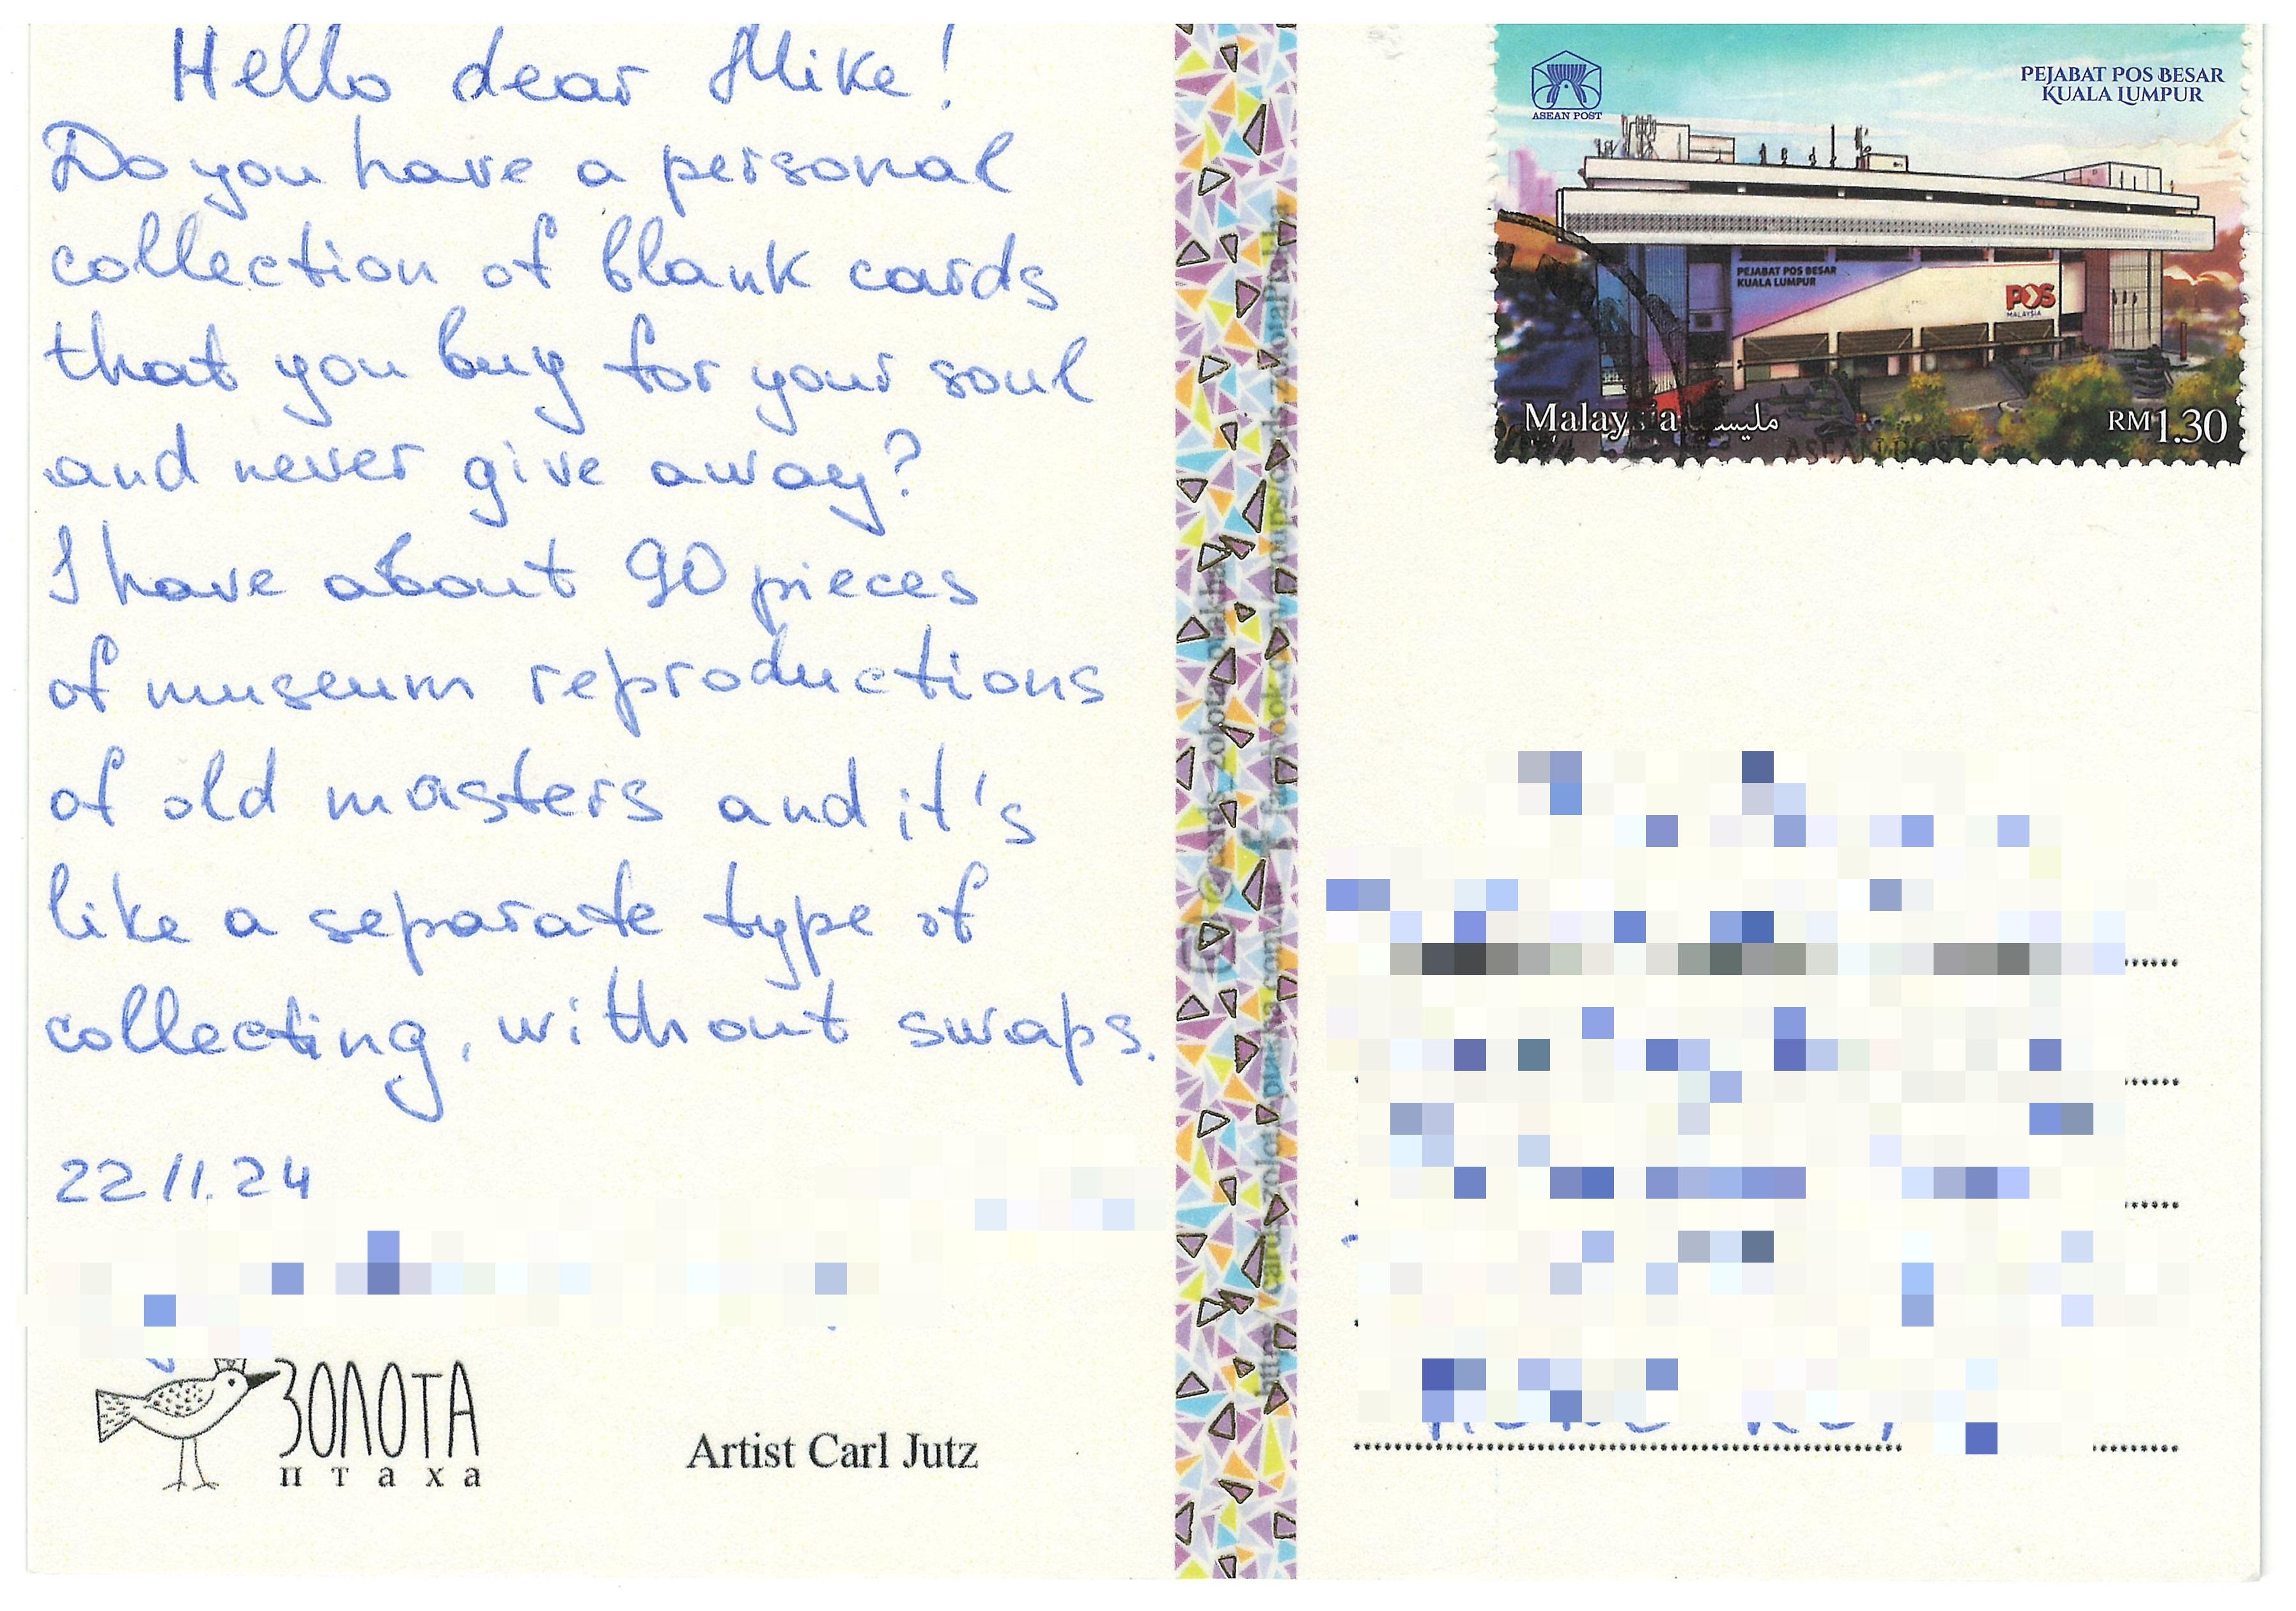 Hello dear Mike!
Do you have a personal
collection of blank cards
that you buy for your soul
and never give away?
I have about 90 pieces
of museum reproductions
of old masters and it's
like a separate type of
collecting, without swaps.
22.11.24
ЗОЛОТА
птаха
Artist Carl Jutz
ASEAN POST
PEJABAT POS BESAR
KUALA LUMPUR
PEJABAT POS BESAR
KUALA LUMPUR
POS
MALAYSIA
Malaysia مليسيا
RM1.30
ASEAN POST